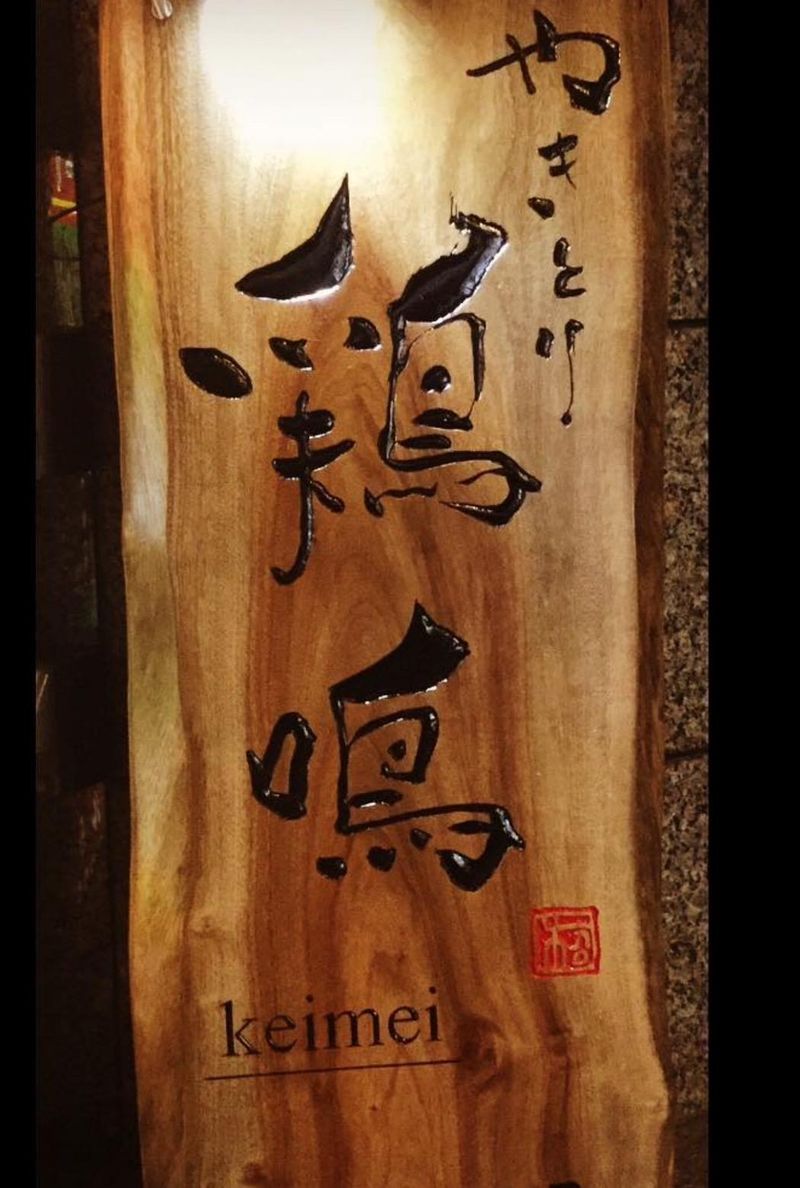 やきとり
鶏鳴
keimei